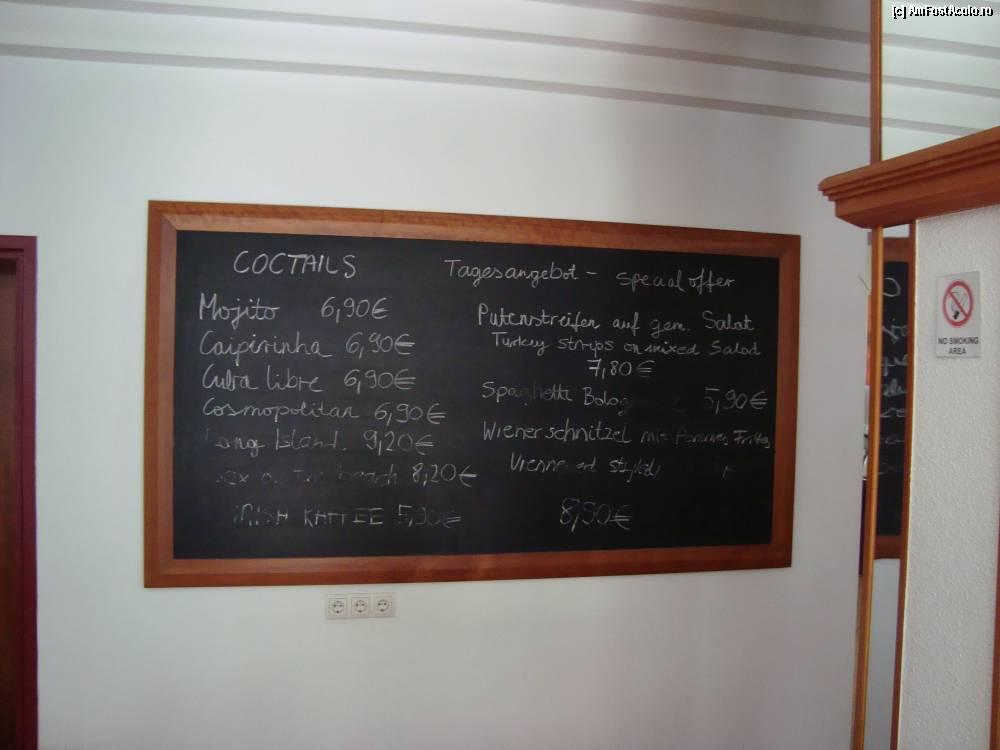 [c] AmFostAcolo.ro
COCTAILS
Mojito 6,90€
Caipirinha 6,90€
Cuba libre 6,90€
Cosmopolitan 6,90€
Long Island. 9,20€
beach 8,20€
IRISH KAFFEE 5,90€
Tagesangebot - special offer
Putenstreifen auf gem. Salat
Turkey strips on mixed Salad
7,80€
Spaghetti 5,90€
Wienerschnitzel mit Pommes Frites
8,90€
NO SMOKING
AREA